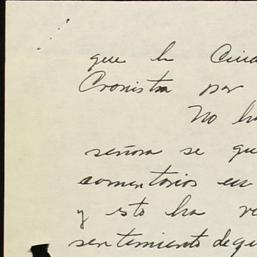 que la
Cronista por
No
señora se
comentarios en
y esto ha
sentimiento de